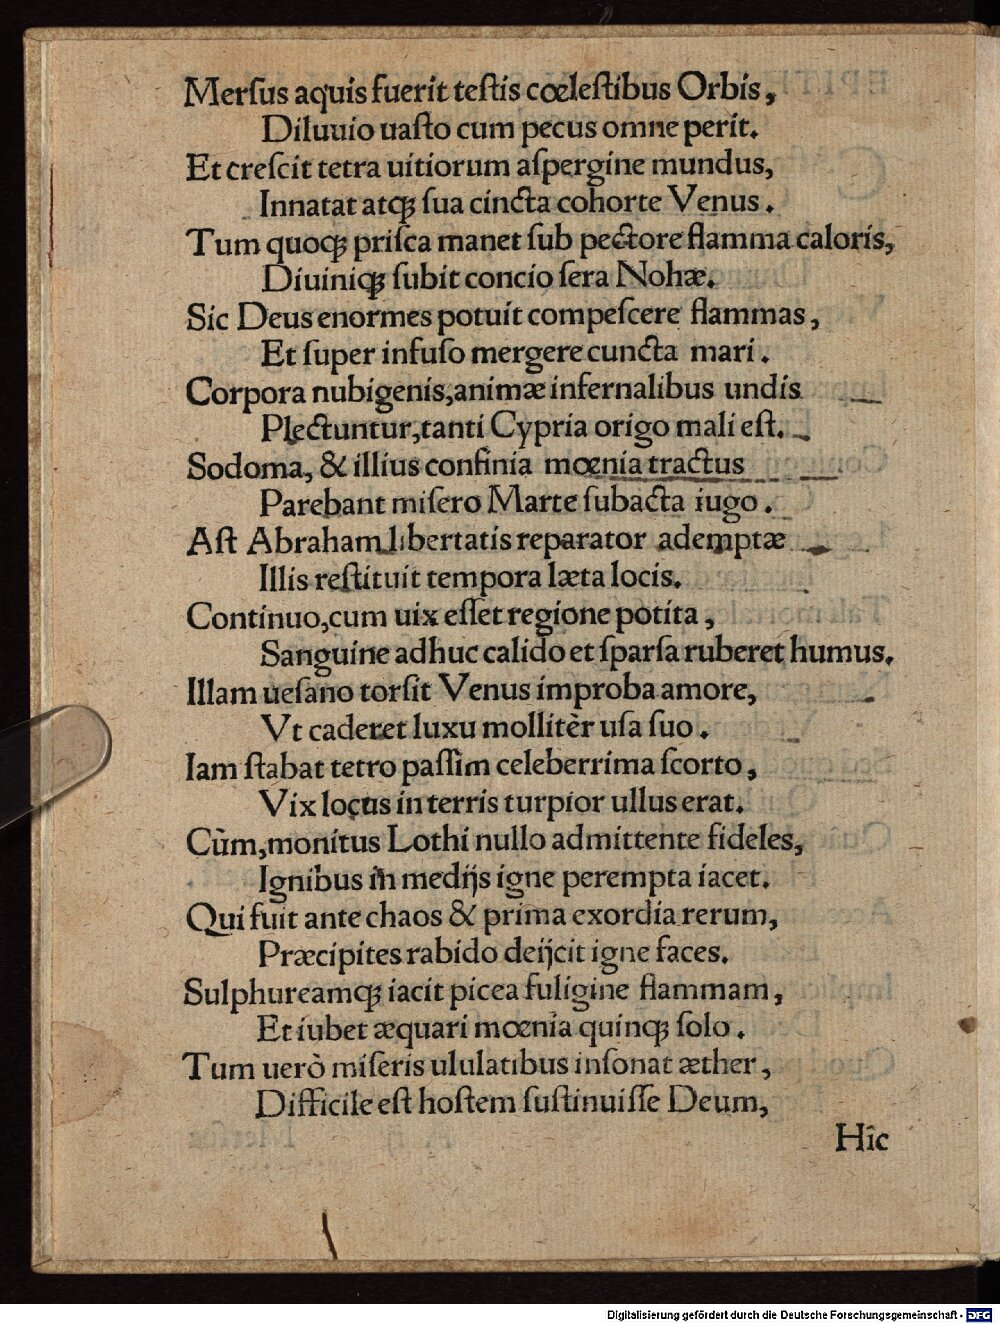 Merſus aquis fuerit teſtis cœleſtibus Orbis,
Diluuio uaſto cum pecus omne perit.
Et creſcit tetra uitiorum aſpergine mundus,
Innatat atq; ſua cincta cohorte Venus.
Tum quoq; priſca manet ſub pectore flamma caloris,
Diuiniq; ſubit concio ſera Nohæ.
Sic Deus enormes potuit compeſcere flammas,
Et ſuper infuſo mergere cuncta mari.
Corpora nubigenis, animæ infernalibus undis
Plectuntur, tanti Cypria origo mali eſt.
Sodoma, & illius confinia mœnia tractus
Parebant miſero Marte ſubacta iugo.
Aſt Abraham libertatis reparator ademptæ
Illis reſtituit tempora læta locis.
Continuo, cum uix eſſet regione potita,
Sanguine adhuc calido et ſparſa ruberet humus,
Illam ueſano torſit Venus improba amore,
Vt caderet luxu mollitèr uſa ſuo.
Iam ſtabat tetro paſſim celeberrima ſcorto,
Vix locus in terris turpior ullus erat.
Cùm, monitus Lothi nullo admittente fideles,
Ignibus in medijs igne perempta iacet.
Qui fuit ante chaos & prima exordia rerum,
Præcipites rabido deijcit igne faces.
Sulphureamq; iacit picea fuligine flammam,
Et iubet æquari mœnia quinq; ſolo.
Tum uerò miſeris ululatibus inſonat æther,
Difficile eſt hoſtem ſuſtinuiſſe Deum,
Hîc
Digitalisierung gefördert durch die Deutsche Forschungsgemeinschaft - DFG